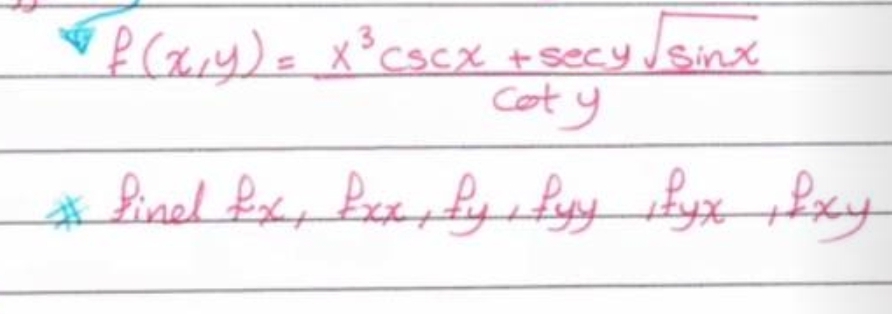 f(x,y) = x³cscx + secy √sinx
cot y
* find fx, fxx, fy, fyy, fyx, fxy